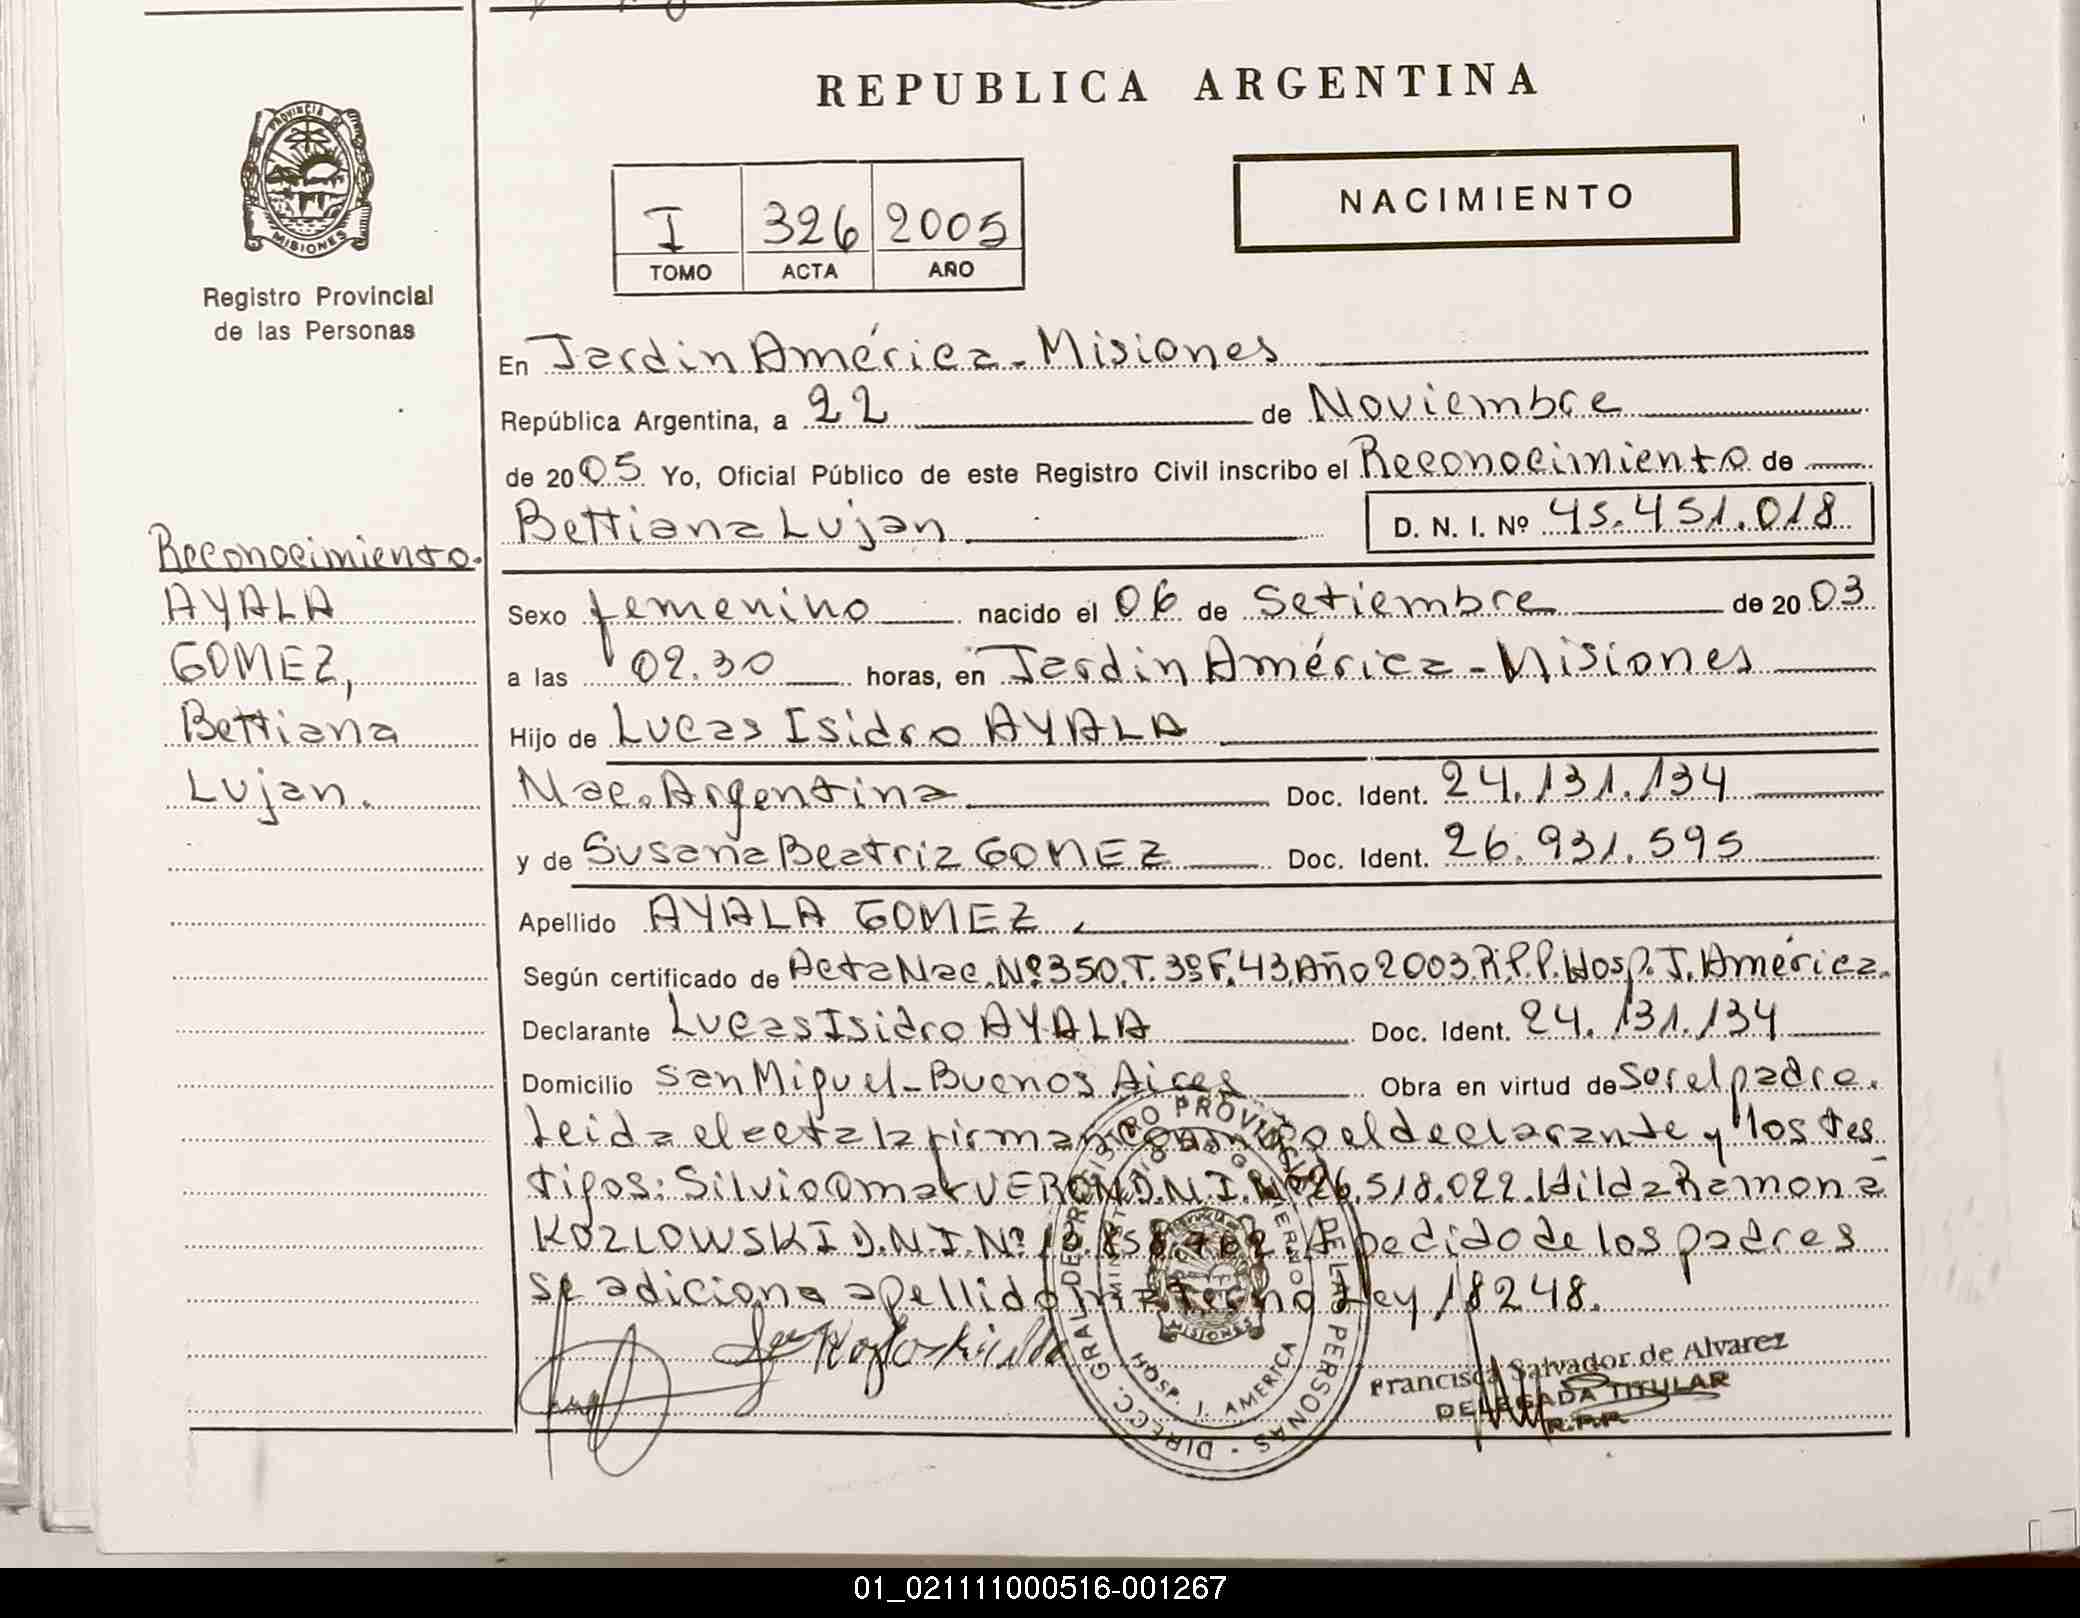 REPUBLICA ARGENTINA
PROVINCIA DE
MISIONES
Registro Provincial
de las Personas
I 326 2005
TOMO ACTA AÑO
NACIMIENTO
En Jardin América - Misiones
República Argentina, a 22 de Noviembre
de 2005 Yo, Oficial Público de este Registro Civil inscribo el Reconocimiento de
Bettiana Lujan D. N. I. Nº 45.451.018
Reconocimiento.
AYALA
GOMEZ,
Bettiana
Lujan.
Sexo femenino nacido el 06 de Setiembre de 2003
a las 02.30 horas, en Jardin América - Misiones
Hijo de Lucas Isidro AYALA
Nac. Argentina Doc. Ident. 24.131.134
y de Susana Beatriz GOMEZ Doc. Ident. 26.931.595
Apellido AYALA GOMEZ
Según certificado de Acta Nac. Nº 350. T. 3º F. 43. Año 2003. R.P.P. Hosp. J. América.
Declarante Lucas Isidro AYALA Doc. Ident. 24.131.134
Domicilio San Miguel - Buenos Aires Obra en virtud de ser el padre.
Leida el acta la firman conmigo el declarante y los tes
tigos: Silvio Omar VERON D.N.I. Nº 26.518.022. Hilda Ramona
KOZLOWSKI D.N.I. Nº A pedido de los padres
se adiciona apellido materno Ley 18248.
DIRECC. GRAL. DE REGISTRO PROVINCIAL DE LAS PERSONAS
MINISTERIO DE GOBIERNO
HOSP. J. AMERICA
MISIONES
Francisca Salvador de Alvarez
DELEGADA TITULAR
R.P.P.
01_021111000516-001267